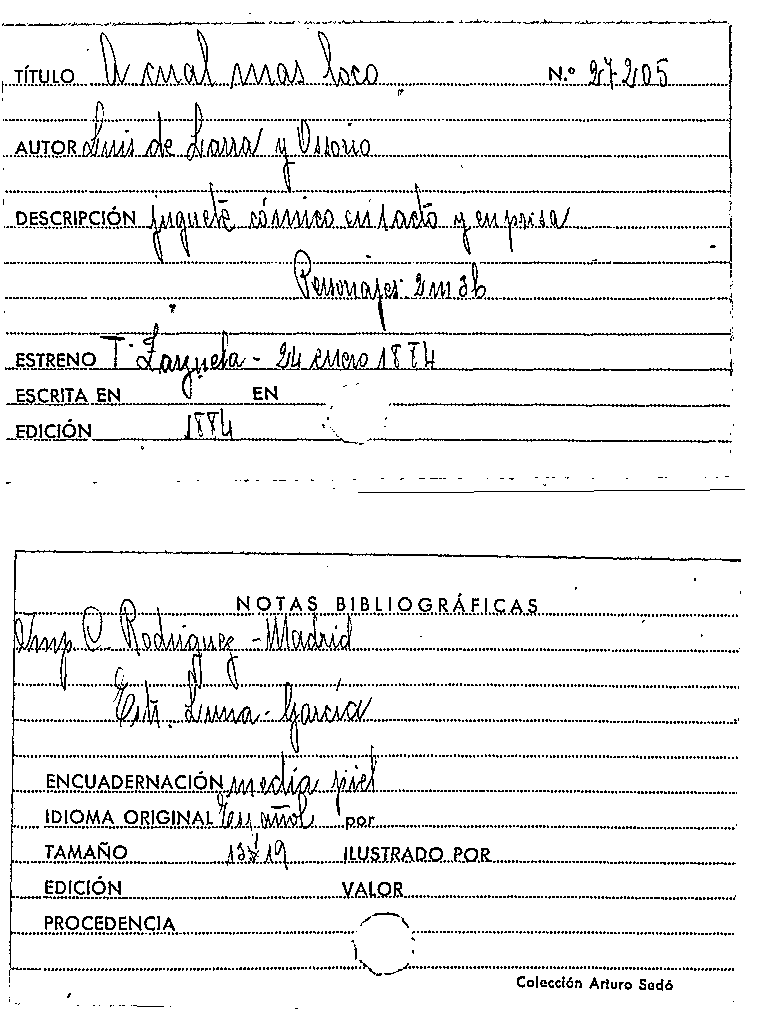 TÍTULO A cual mas loco N.º 27205
AUTOR Luis de Larra y Ossorio
DESCRIPCIÓN juguete cómico en 1 acto y en prosa
Personajes: 2 m 3 h
ESTRENO T. Zarzuela - 24 enero 1884
ESCRITA EN EN
EDICIÓN 1884
NOTAS BIBLIOGRÁFICAS
Imp C. Rodriguez - Madrid
Estr. Luna - García
ENCUADERNACIÓN media piel
IDIOMA ORIGINAL Español por
TAMAÑO 13x19 ILUSTRADO POR
EDICIÓN VALOR
PROCEDENCIA
Colección Arturo Sedó